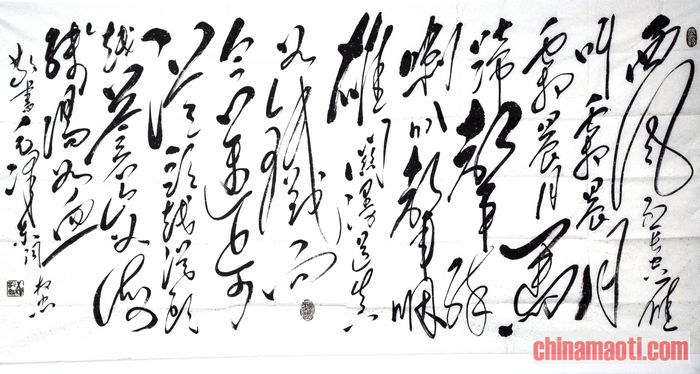 西风烈长空雁
叫霜晨月
霜晨月马
蹄聲碎
喇叭聲咽
雄关漫道真
如鐵而
今迈步
从头越从头
越苍山如海
残阳如血
敬书毛泽东词
chinamaoti.com